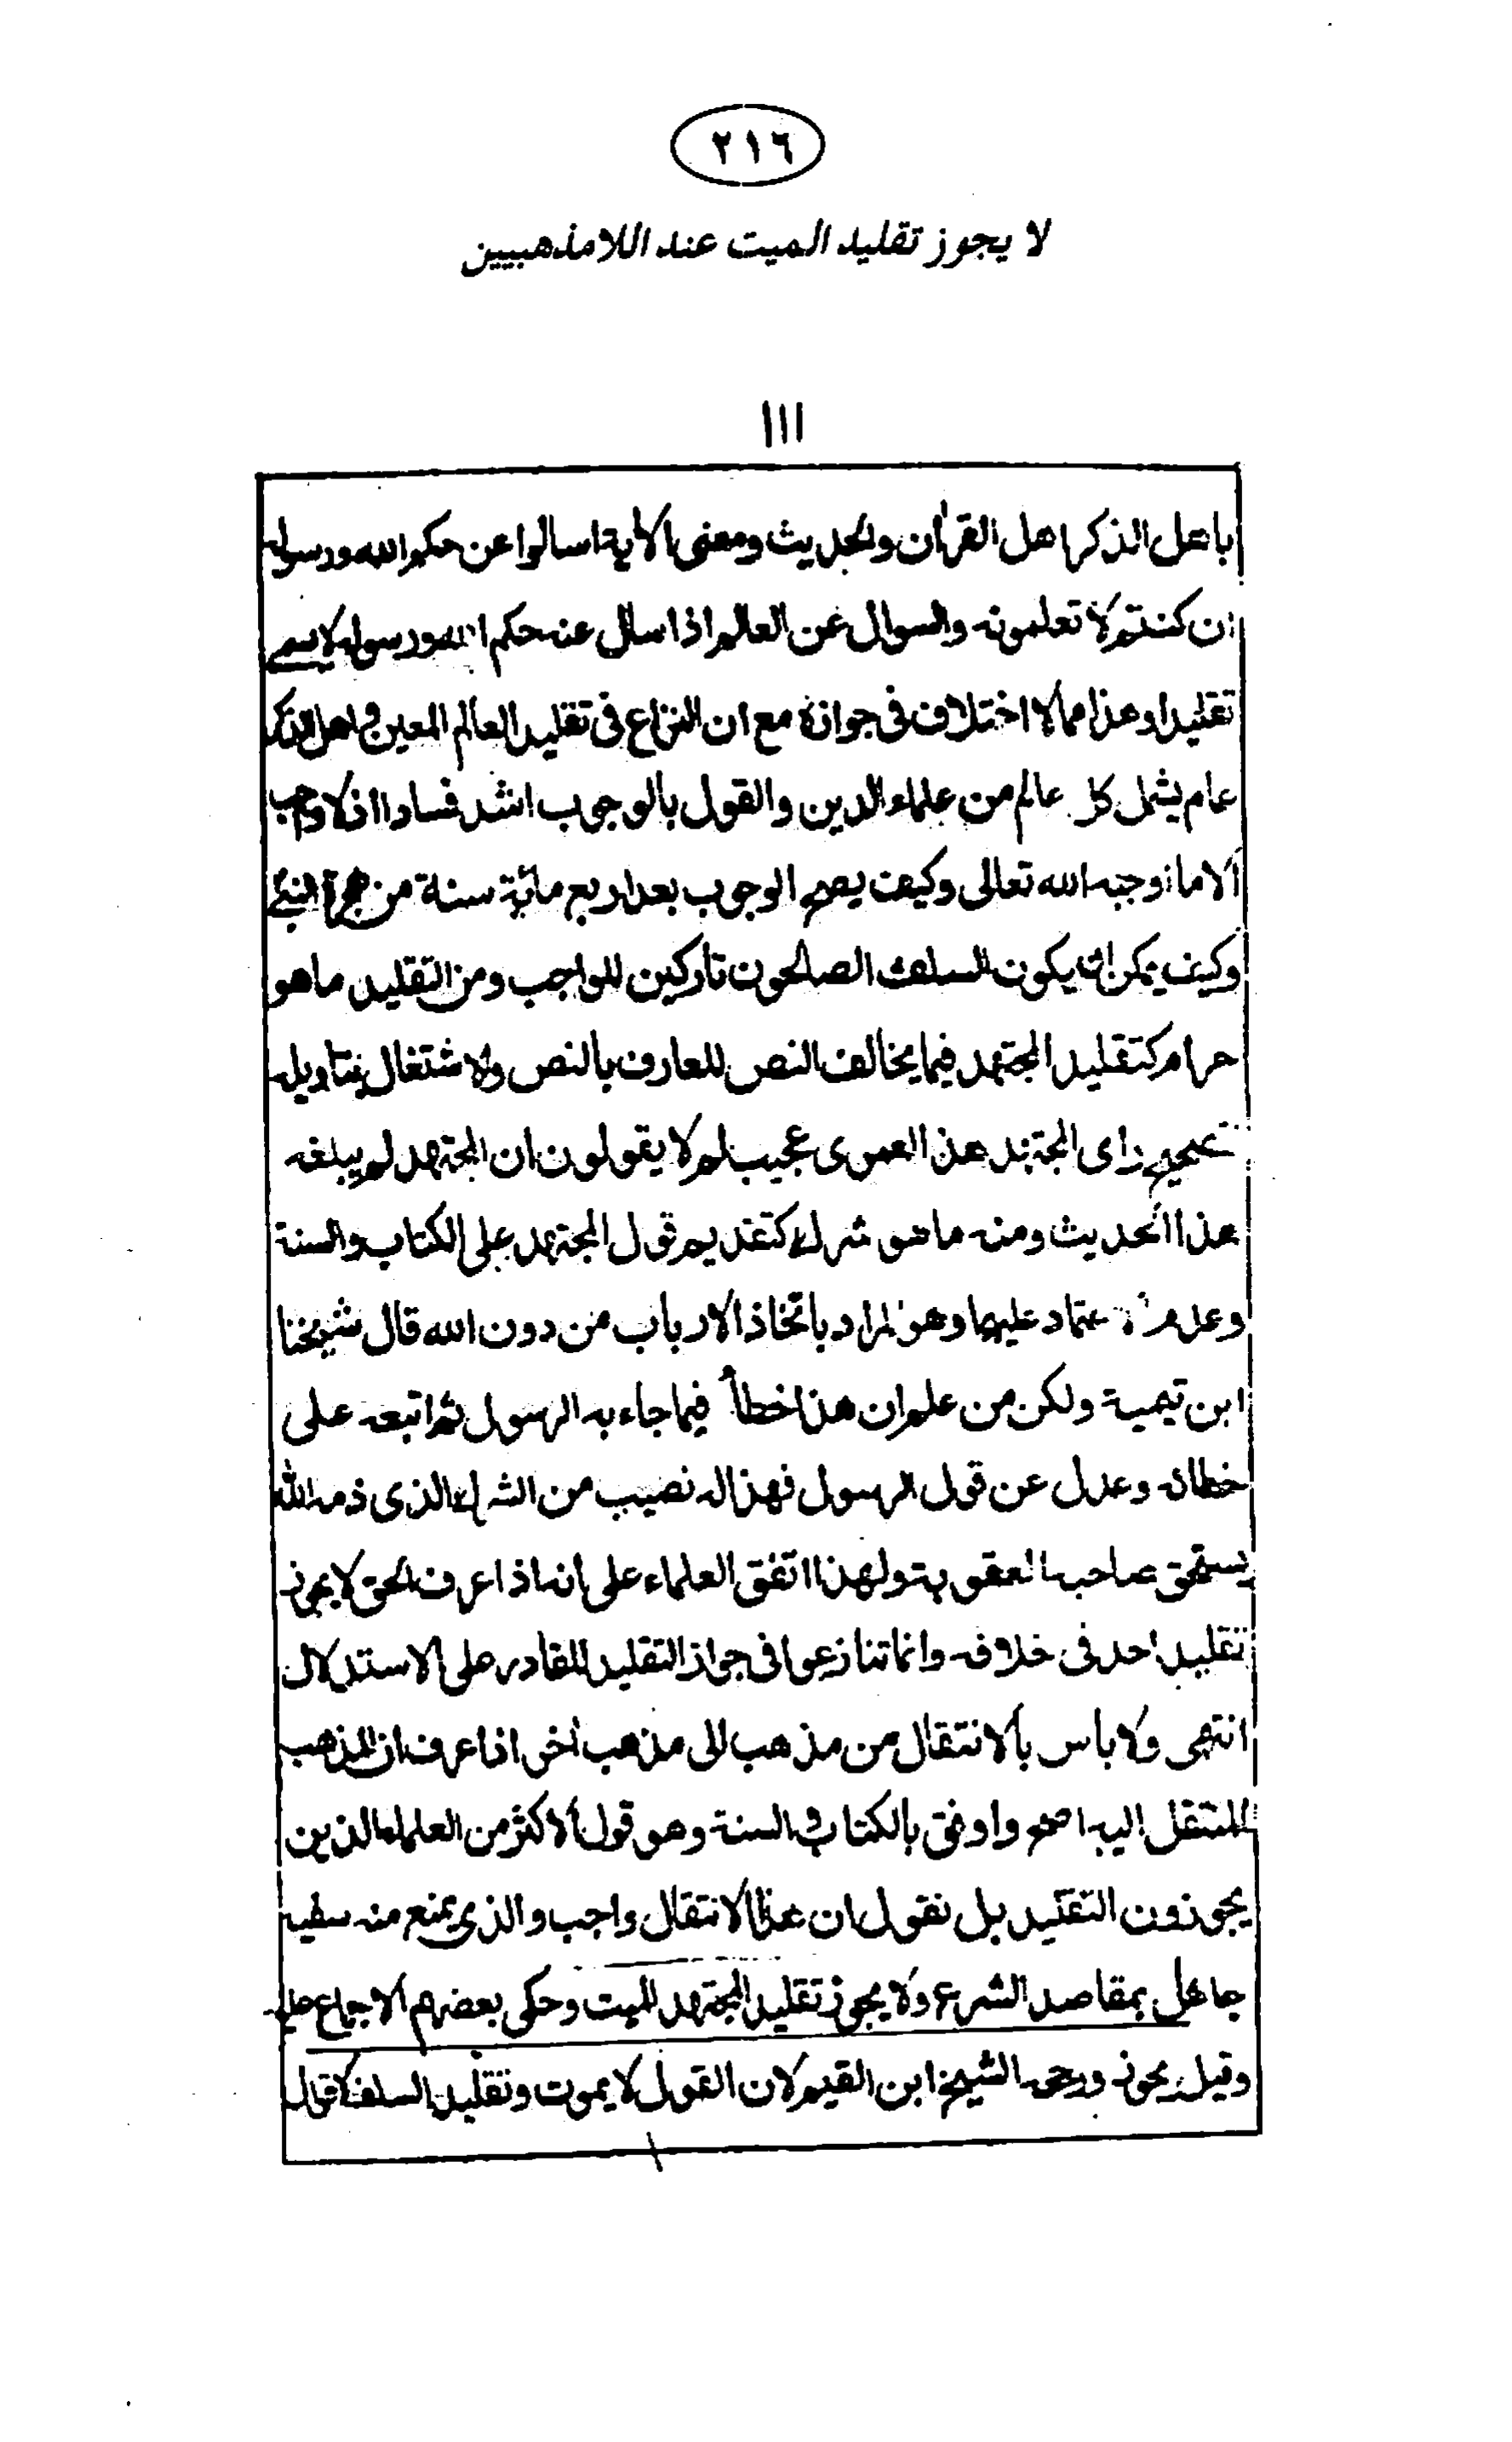 ٢١٦
لا يجوز تقليد الميت عند اللامذهبيين
١١١
باهل الذكر اهل القرأن والحديث ومعنى الأية اسالوا عن حكم الله ورسوله
ان كنتم لا تعلمونه والسوال عن العالم اذا سال عنه حكم الله ورسوله لا يسمى
تقليدا وهذا مما لا اختلاف فى جوازه مع ان النزاع فى تقليد العالم المعين واهل الذكر
عام يشمل كل عالم من علماء الدين والقول بالوجوب اشد فسادا اذ لا واجب
الا ما اوجبه الله تعالى وكيف يصح الوجوب بعد اربع مائة سنة من هجرة النبى
وكيف يمكن ان يكون السلف الصالحون تاركين للواجب ومن التقليد ما هو
حرام كتقليد المجتهد فيما يخالف النص للعارف بالنص والاشتغال بتاويله
تصحيح راى المجتهد هذا لعمرى عجيب لم لا يقولون ان المجتهد لم يبلغه
هذا الحديث ومنه ما هو شرك كتقديم قول المجتهد على الكتاب والسنة
وعدم الاعتماد عليهما وهو المراد باتخاذ الارباب من دون الله قال شيخنا
ابن تيمية ولكن من علم ان هذا خطأ فيما جاء به الرسول ثم اتبعه على
خطائه وعدل عن قول الرسول فهذا له نصيب من الشرك الذى ذمه الله
يستحق صاحبه العقوبة ولهذا اتفق العلماء على انه اذا عرف الحق لا يجوز
تقليد احد فى خلافه وانما تنازعوا فى جواز التقليد للقادر على الاستدلال
انتهى ولا باس بالانتقال من مذهب الى مذهب أخر اذا عرف ان المذهب
المنتقل اليه اصح واوفق بالكتاب والسنة وهو قول الاكثر من العلماء الذين
يجوزون التقليد بل نقول ان هذا الانتقال واجب والذى يمنع منه سفيه
جاهل بمقاصد الشرع ولا يجوز تقليد المجتهد الميت وحكى بعضهم الاجماع عليه
وقيل يجوز ورجحه الشيخ ابن القيم لان القول لا يموت وتقليد السلف كما قال